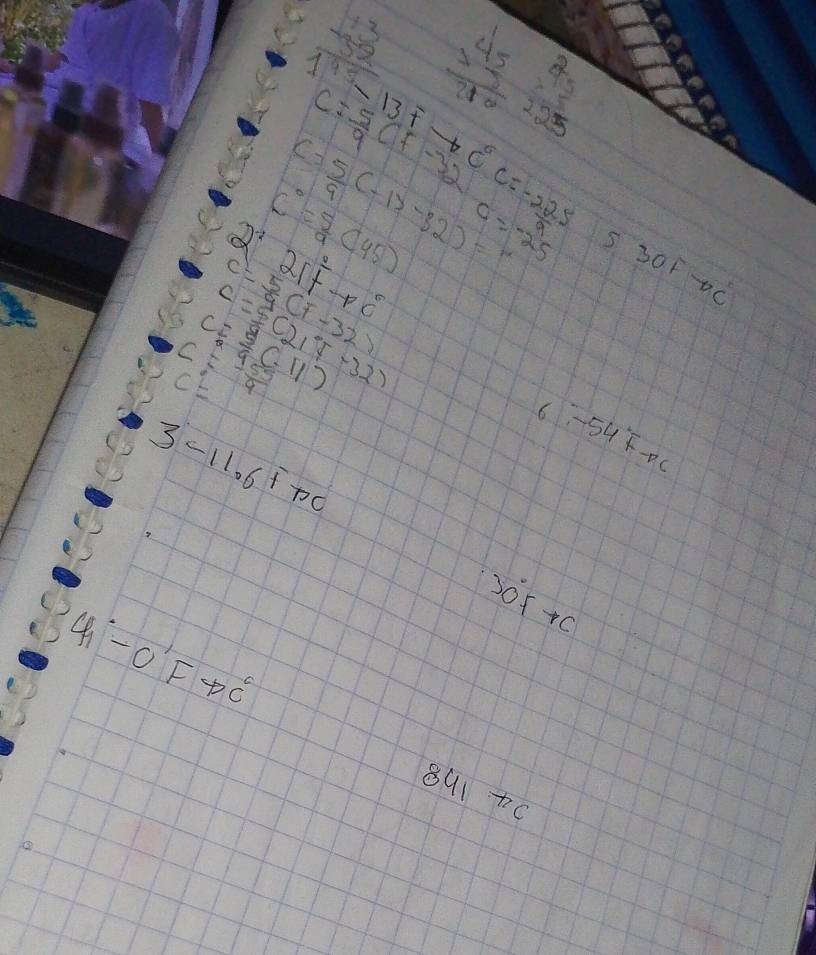 45
225
1
13F → C°
C = 5/9 (F - 32
C = 5/9 (-13 - 32) =
C° = 5/9 (45)
C = -225/9
C = -25
2.
21F° → C°
C = 5/9 (F - 32)
C = 5/9 (21F - 32)
C = 5/9 (-11)
C =
3 -11.6 F → C
4 -0 F → C°
5 30F → C
6 -54 F → C
30°F → C
841 → C